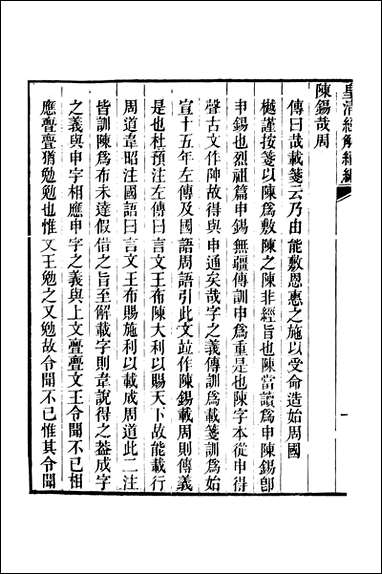 皇清經解續編
一
陳錫哉周
傳曰哉載箋云乃由能敷恩惠之施以受命造始周國
樾謹按箋以陳爲敷陳之陳非經旨也陳當讀爲申陳錫卽
申錫也烈祖篇申錫無疆傳訓申爲重是也陳字本從申得
聲古文作𨸬故得與申通矣哉字之義傳訓爲載箋訓爲始
宣十五年左傳及國語周語引此文竝作陳錫載周則傳義
是也杜預注左傳曰言文王布陳大利以賜天下故能載行
周道韋昭注國語曰言文王布賜施利以載成周道此二注
皆訓陳爲布未達假借之旨至解載字則韋說得之葢成字
之義與申字相應申字之義與上文亹亹文王令聞不已相
應亹亹猶勉勉也惟文王勉之又勉故令聞不已惟其令聞